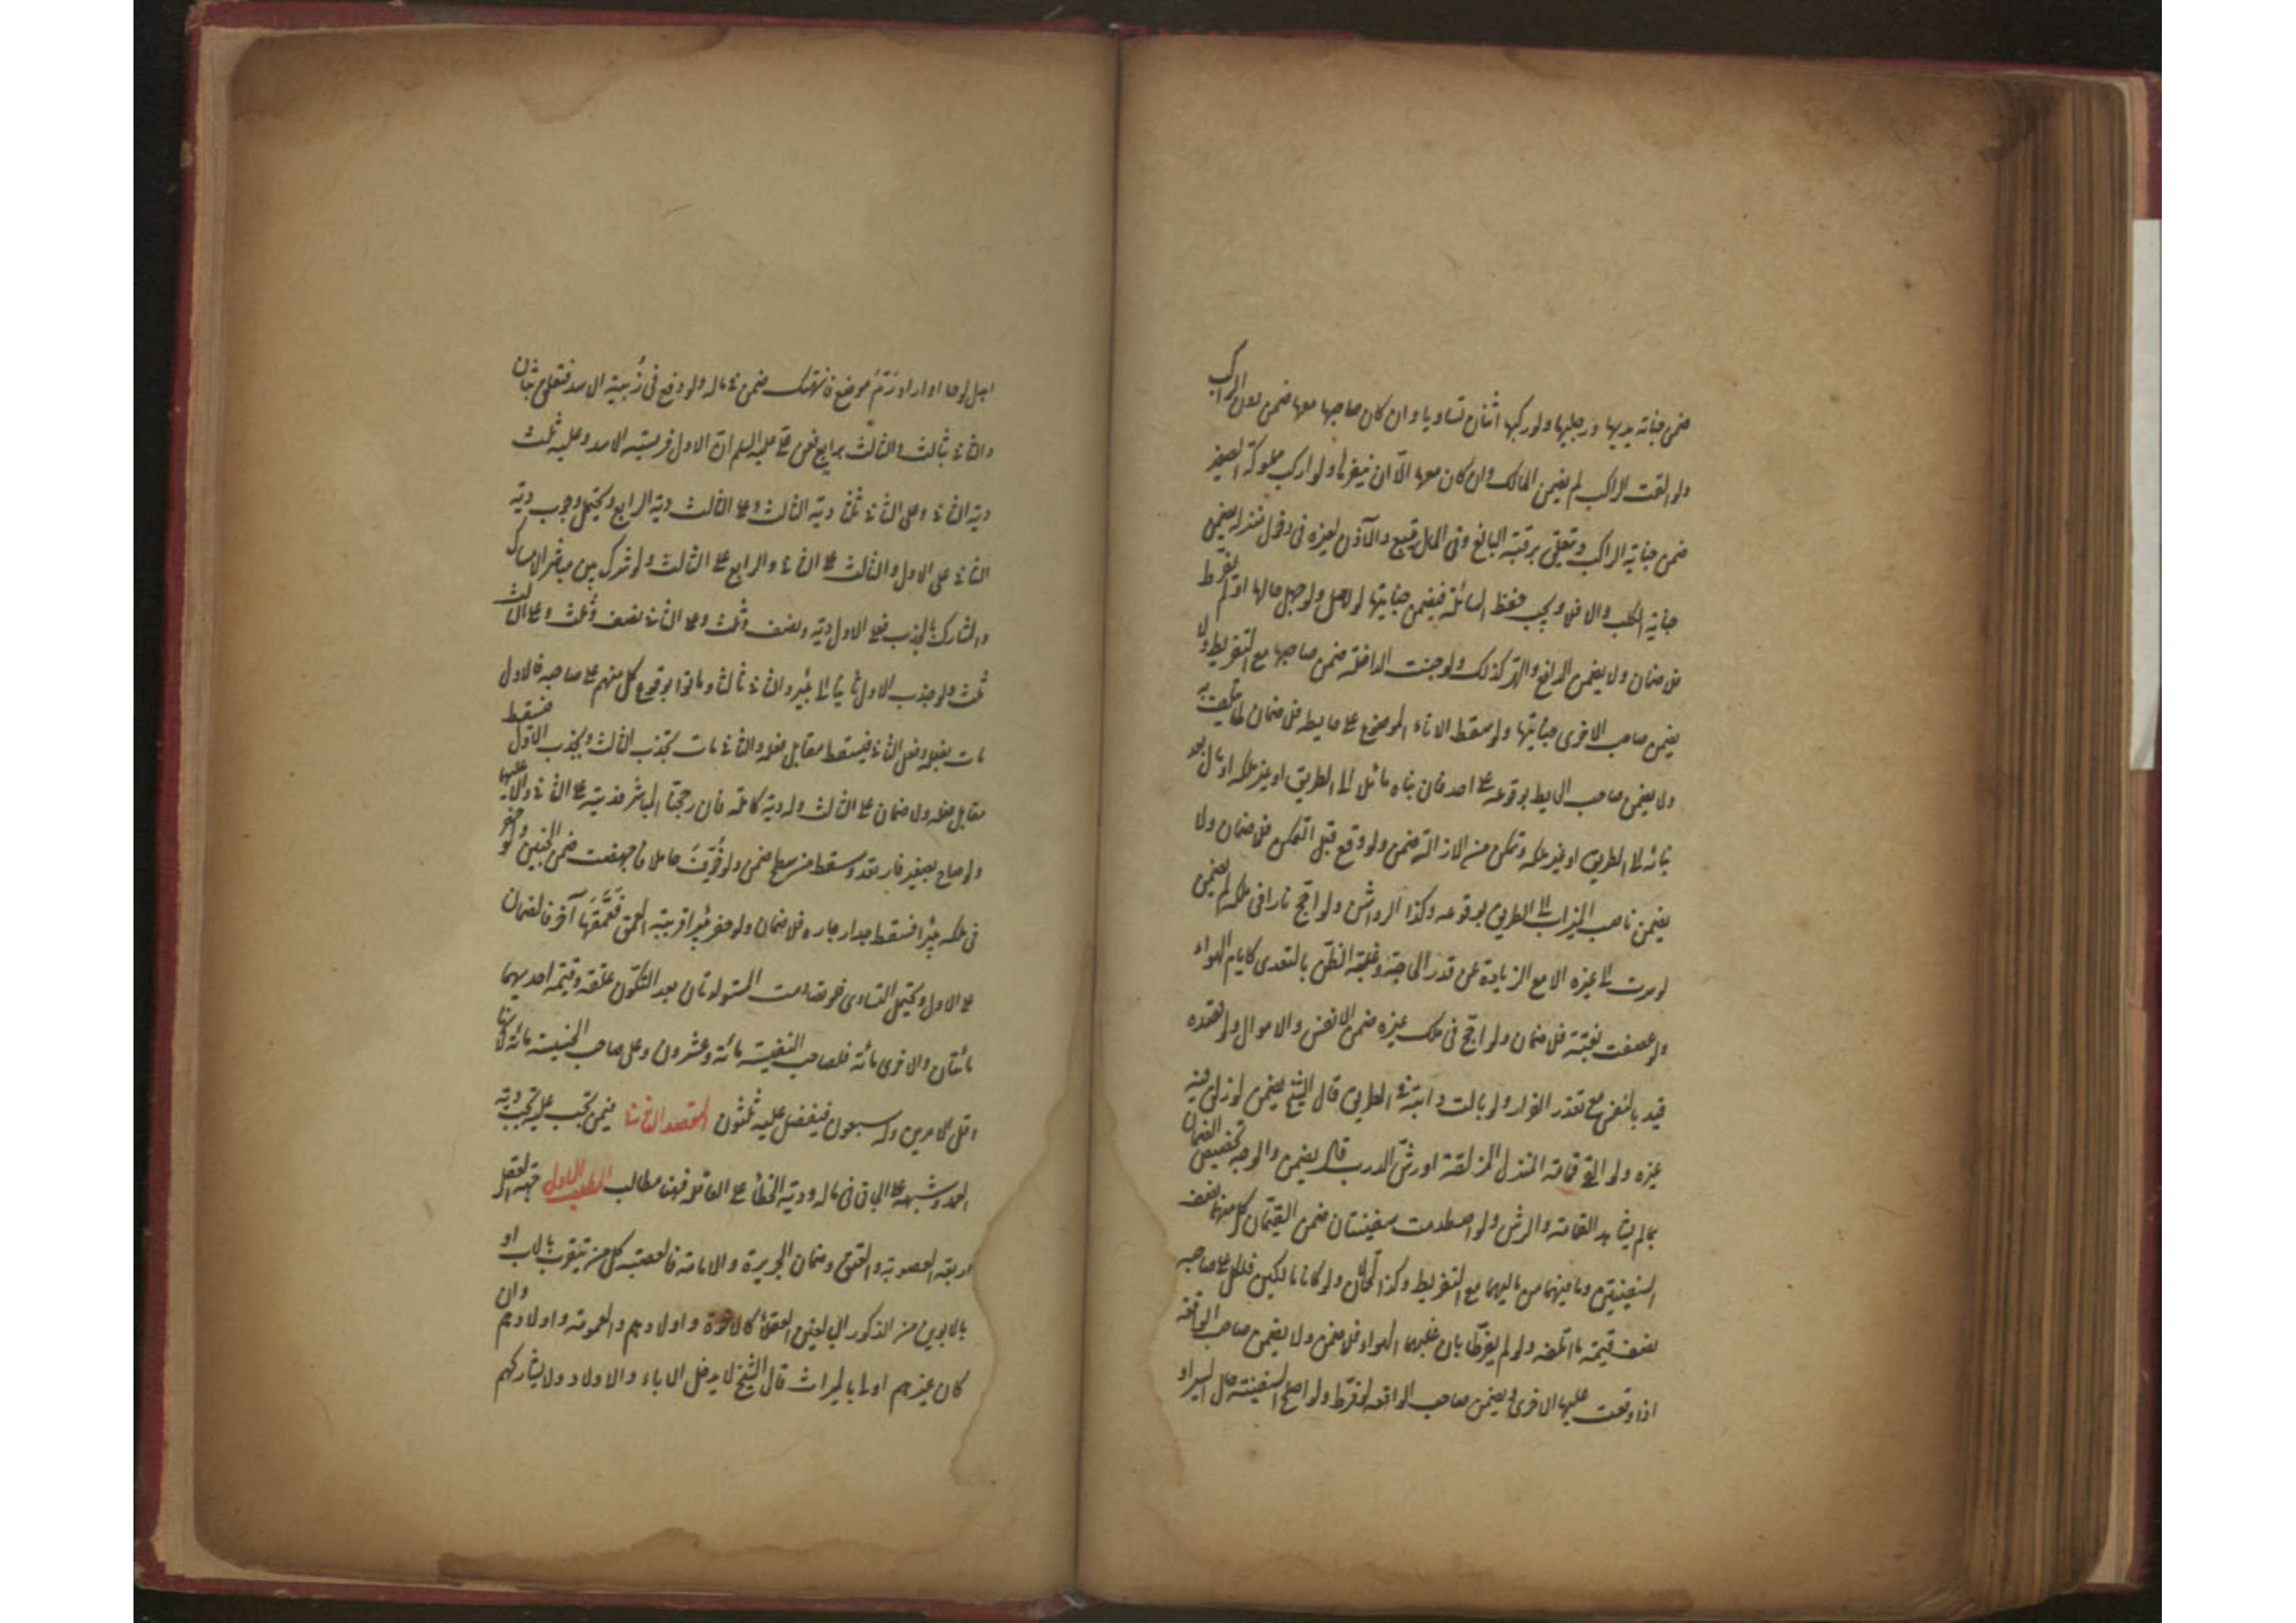 ضمن جناية يديها ورجليها ولو ركبها اثنان تساويا وان كان صاحبها معها ضمن دون الراكب
ولو القت الراكب لم يضمن المالك وان كان معها الا ان ينفرها ولو اركب مملوكه الصغير
ضمن جناية الراكب وتتعلق برقبة البالغ وفي المال يتبع والآذن لغيره في دخول منزله يضمن
جناية الكلب والا فلا ويجب حفظ الصائلة فيضمن جنايتها لو اهمل ولو جهل حالها او لم يفرط
فلا ضمان ولا يضمن الدافع والهر كذلك ولو جنت الداخلة ضمن صاحبها مع التفريط ولا
يضمن صاحب الاخرى جنايتها ولو سقط الاناء الموضوع على حايطه فلا ضمان لما يتلف به
ولا يضمن صاحب الحايط بوقوعه على احد فان بناه مائلا الى الطريق او غير ملكه او مال بعد
بنائه الى الطريق او غير ملكه وتمكن من الازالة ضمن ولو وقع قبل التمكن فلا ضمان ولا
يضمن ناصب الميزاب الى الطريق بوقوعه وكذا الرواشن ولو اجج نارا في ملكه لم يضمن
لو سرت الى غيره الا مع الزيادة عن قدر الحاجة وغلبة الظن بالتعدى كايام الهواء
ولو عصفت بغتة فلا ضمان ولو اجج في ملك غيره ضمن الانفس والاموال ولو قصده
قيد بالنفس مع تعذر الفرار ولو بالت دابته في الطريق قال الشيخ يضمن لو زلق فيه
غيره ولو القى قمامة المنزل المزلقة او رش الدرب قال يضمن والوجه تخصيص الضمان
بمن لم يشاهد القمامة والرش ولو اصطدمت سفينتان ضمن القيمان كل منهما نصف
السفينتين وما فيهما من ماليهما مع التفريط وكذا الحمالان ولو كانا مالكين فلكل على صاحبه
نصف قيمة ما اتلفه ولو لم يفرطا بان غلبهما الهواء فلا ضمن ولا يضمن صاحب الواقفة
اذا وقعت عليها الاخرى ويضمن صاحب الواقعة لو فرط ولو اصلح السفينة حال السير او
ابدل لوحا او اراد رم موضع فانهتك ضمن في ماله ولو وقع في زبية الاسد فتعلق بثان
والثاني بثالث والثالث برابع فعن علي عليه السلم ان الاول فريسة الاسد وعليه ثلث
دية الثاني وعلى الثاني ثلثا دية الثالث وعلى الثالث دية الرابع ويحتمل وجوب دية
الثاني على الاول والثالث على الثاني والرابع على الثالث ولو شرك بين مباشر الامساك
والمشارك بالجذب فعلى الاول دية ونصف وثلث وعلى الثاني نصف وثلث وعلى الثالث
ثلث ولو جذب الاول ثانيا الى بئر والثاني ثالثا وماتوا بوقوع كل منهم على صاحبه فالاول
مات بفعله وفعل الثاني فيسقط مقابل فعله والثاني مات بجذب الثالث وبجذب الاول فيسقط
مقابل فعله ولا ضمان على الثالث وله دية كاملة فان رجحنا المباشر فديته على الثاني والا فعليهما
ولو صاح بصغير فارتعد وسقط من سطح ضمن ولو خوفت حاملا فاجهضت ضمن الجنين ولو حفر
في ملكه بئرا فسقط جدار جاره فلا ضمان ولو حفر بئرا قريبة العمق فعمقها آخر فالضمان
على الاول ويحتمل التساوى فلو تصادمت المستولدتان بعد التكون علقة وقيمة احديهما
مائتان والاخرى مائة فلصاحب النفيسة مائة وعشرون وعلى صاحب الخسيسة مائة لانها
اقل الامرين وله سبعون فيفضل عليه ثلثون المقصد الثالث فيمن تجب عليه تجب دية
العمد وشبهه على الجاني في ماله ودية الخطأ على العاقلة فهنا مطالب المطلب الاول جهة العقل
اربعة العصوبة والعتق وضمان الجريرة والامامة فالعصبة كل من يتقرب بالاب او
بالابوين من الذكور البالغين العقلاء كالاخوة واولادهم والعمومة واولادهم وان
كان غيرهم اولى بالميراث قال الشيخ لا يدخل الاباء والاولاد ولا يشاركهم